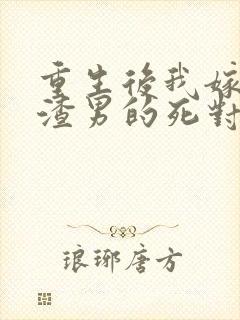 重生後我嫁
渣男的死對
琅琊唐方